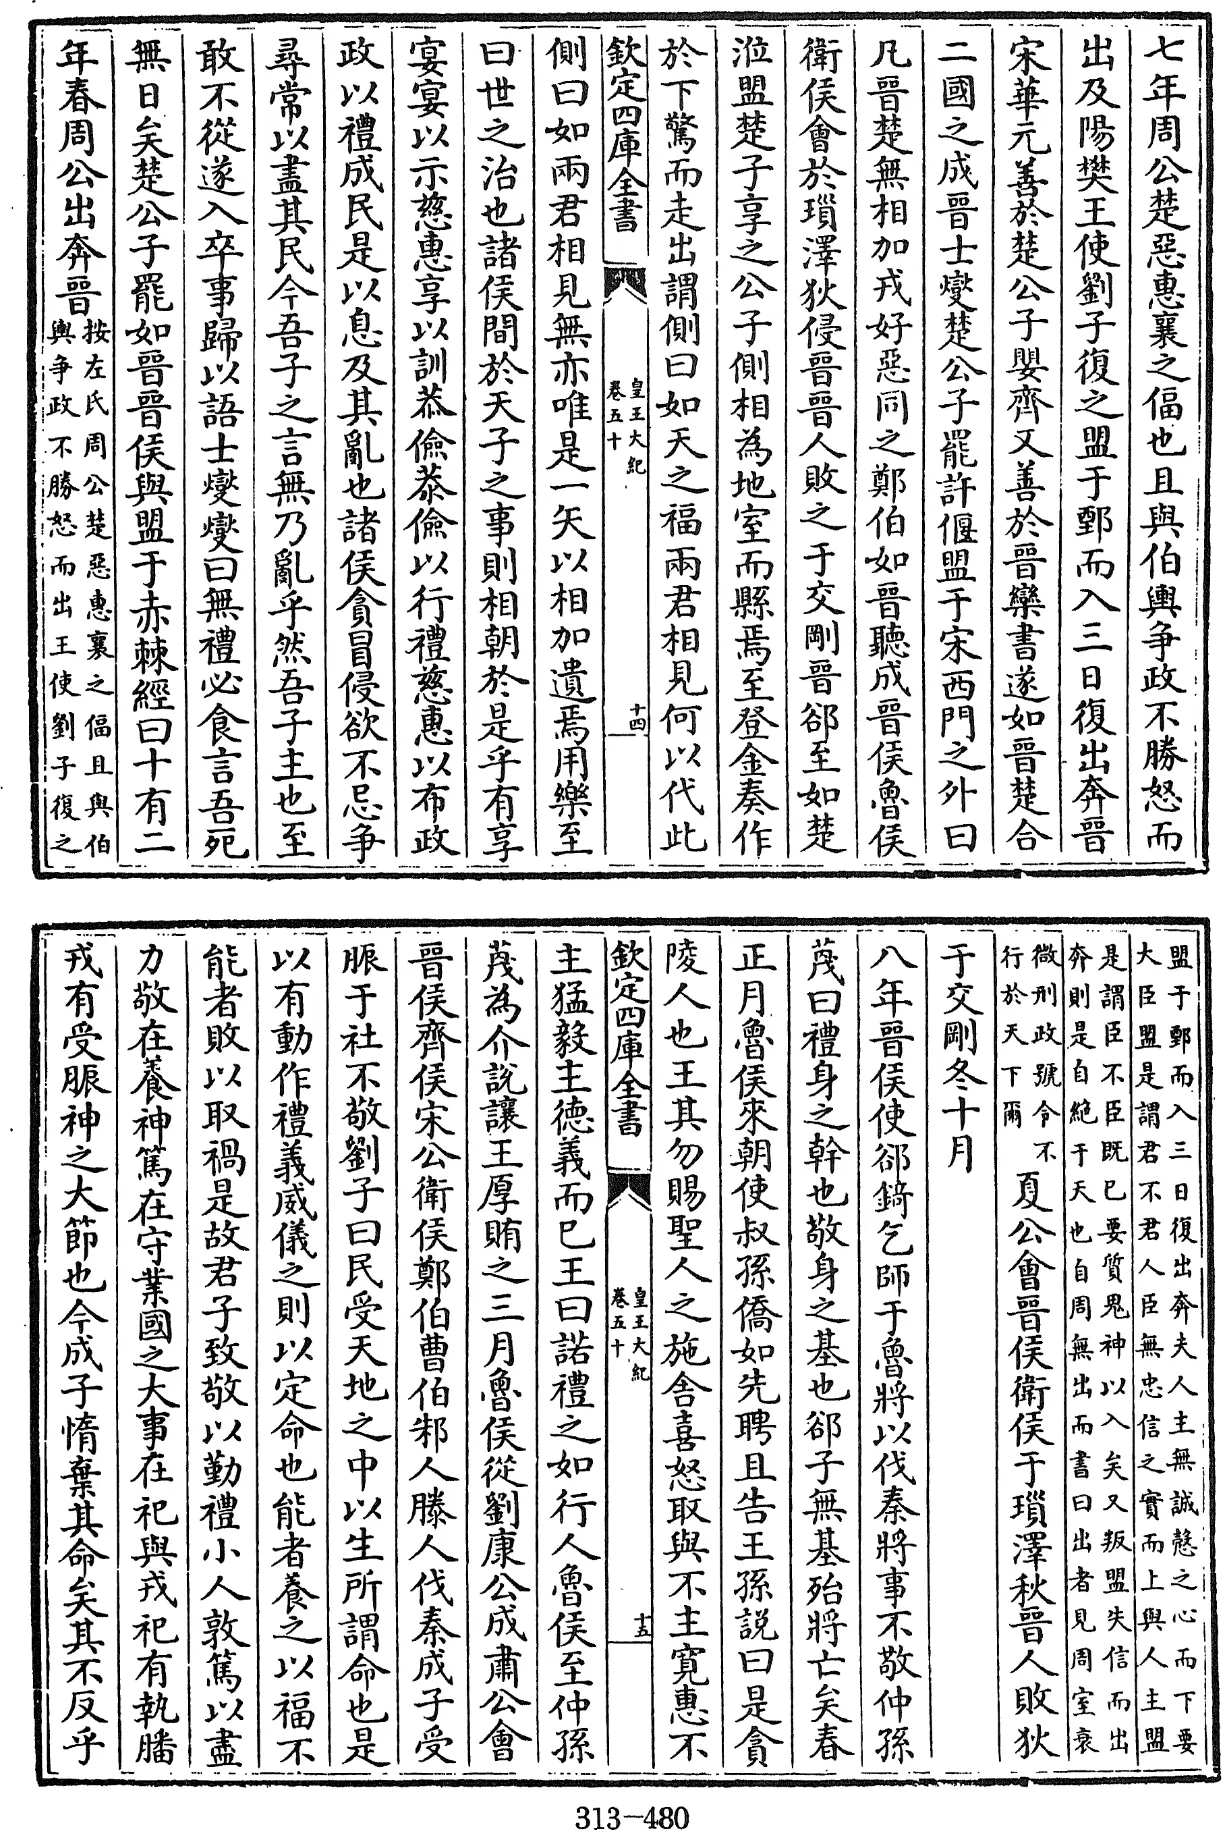 七年周公楚惡惠襄之偪也且與伯輿争政不勝怒而
出及陽樊王使劉子復之盟于鄄而入三日復出奔晉
宋華元善於楚公子嬰齊又善於晉欒書遂如晉楚合
二國之成晉士燮楚公子罷許偃盟于宋西門之外曰
凡晉楚無相加戎好惡同之鄭伯如晉聽成晉侯魯侯
衛侯會於瑣澤狄侵晉晉人敗之于交剛晉郤至如楚
涖盟楚子享之公子側相為地室而縣焉至登金奏作
於下驚而走出謂側曰如天之福兩君相見何以代此
欽定四庫全書
皇王大紀
卷五十
十四
側曰如兩君相見無亦唯是一矢以相加遺焉用樂至
曰世之治也諸侯間於天子之事則相朝於是乎有享
宴宴以示慈惠享以訓恭儉恭儉以行禮慈惠以布政
政以禮成民是以息及其亂也諸侯貪冒侵欲不忌争
尋常以盡其民今吾子之言無乃亂乎然吾子主也至
敢不從遂入卒事歸以語士燮燮曰無禮必食言吾死
無日矣楚公子罷如晉晉侯與盟于赤棘經曰十有二
年春周公出奔晉
按左氏周公楚惡惠襄之偪且與伯
輿争政不勝怒而出王使劉子復之
盟于鄄而入三日復出奔夫人主無誠慤之心而下要
大臣盟是謂君不君人臣無忠信之實而上與人主盟
是謂臣不臣既已要質鬼神以入矣又叛盟失信而出
奔則是自絶于天也自周無出而書曰出者見周室衰
微刑政號令不
行於天下爾
夏公會晉侯衛侯于瑣澤秋晉人敗狄
于交剛冬十月
八年晉侯使郤錡乞師于魯將以伐秦將事不敬仲孫
蔑曰禮身之幹也敬身之基也郤子無基殆將亡矣春
正月魯侯來朝使叔孫僑如先聘且告王孫説曰是貪
陵人也王其勿賜聖人之施舎喜怒取與不主寛惠不
欽定四庫全書
皇王大紀
卷五十
十五
主猛毅主徳義而已王曰諾禮之如行人魯侯至仲孫
蔑為介說讓王厚賄之三月魯侯從劉康公成肅公會
晉侯齊侯宋公衛侯鄭伯曹伯邾人滕人伐秦成子受
脤于社不敬劉子曰民受天地之中以生所謂命也是
以有動作禮義威儀之則以定命也能者養之以福不
能者敗以取禍是故君子致敬以勤禮小人敦篤以盡
力敬在養神篤在守業國之大事在祀與戎祀有執膰
戎有受脤神之大節也今成子惰棄其命矣其不反乎
313-480